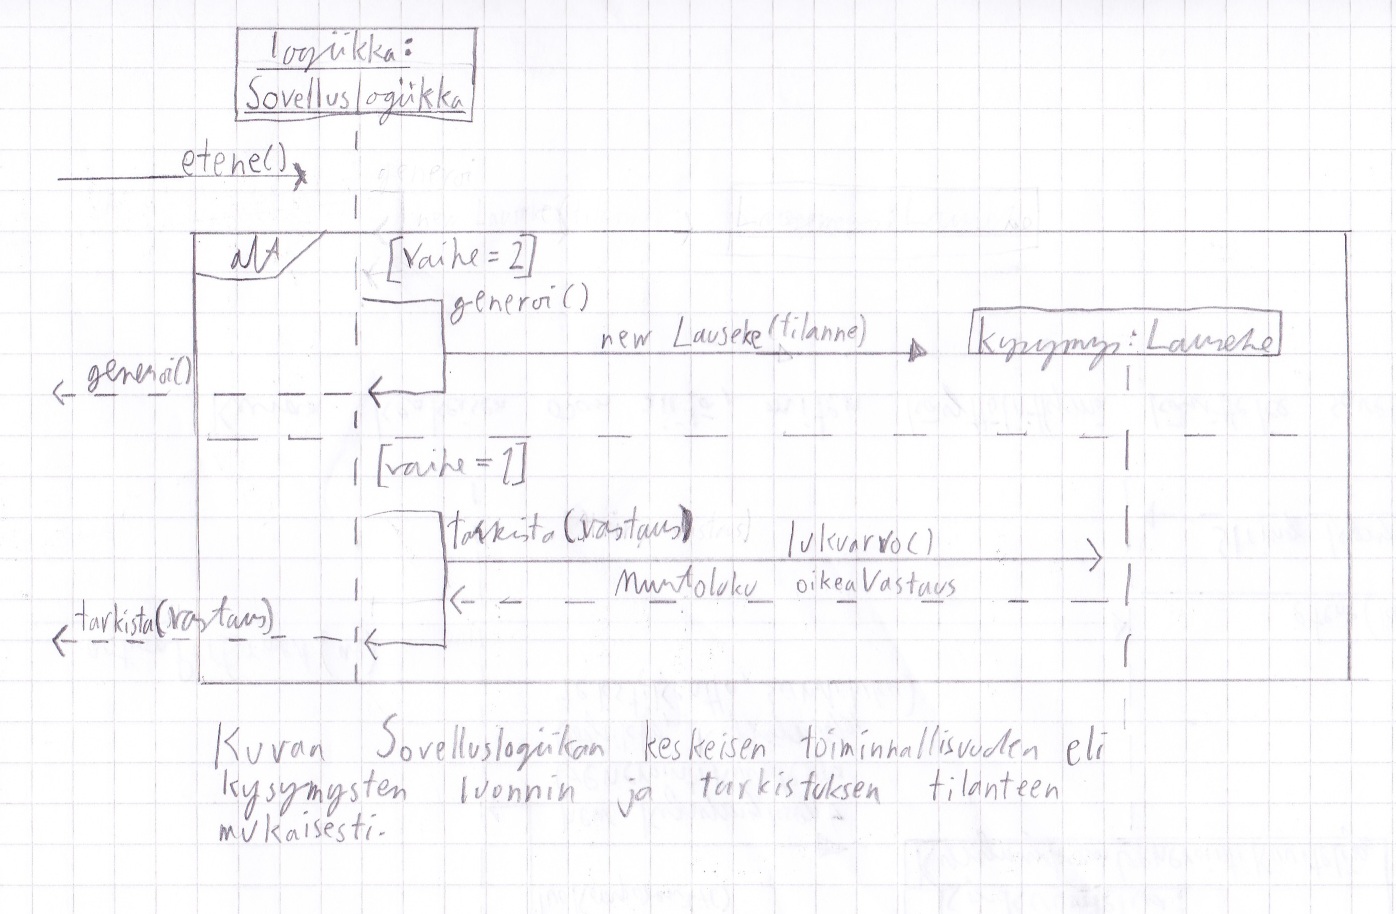 logiikka:
Sovelluslogiikka
etene()
alt
[vaihe = 2]
generoi()
new Lauseke(tilanne)
kysymys: Lauseke
generoi()
[vaihe = 1]
tarkista(vastaus)
lukuarvo()
Murtoluku oikeaVastaus
tarkista(vastaus)
Kuvaa Sovelluslogiikan keskeisen toiminnallisuuden eli
kysymysten luonnin ja tarkistuksen tilanteen
mukaisesti.